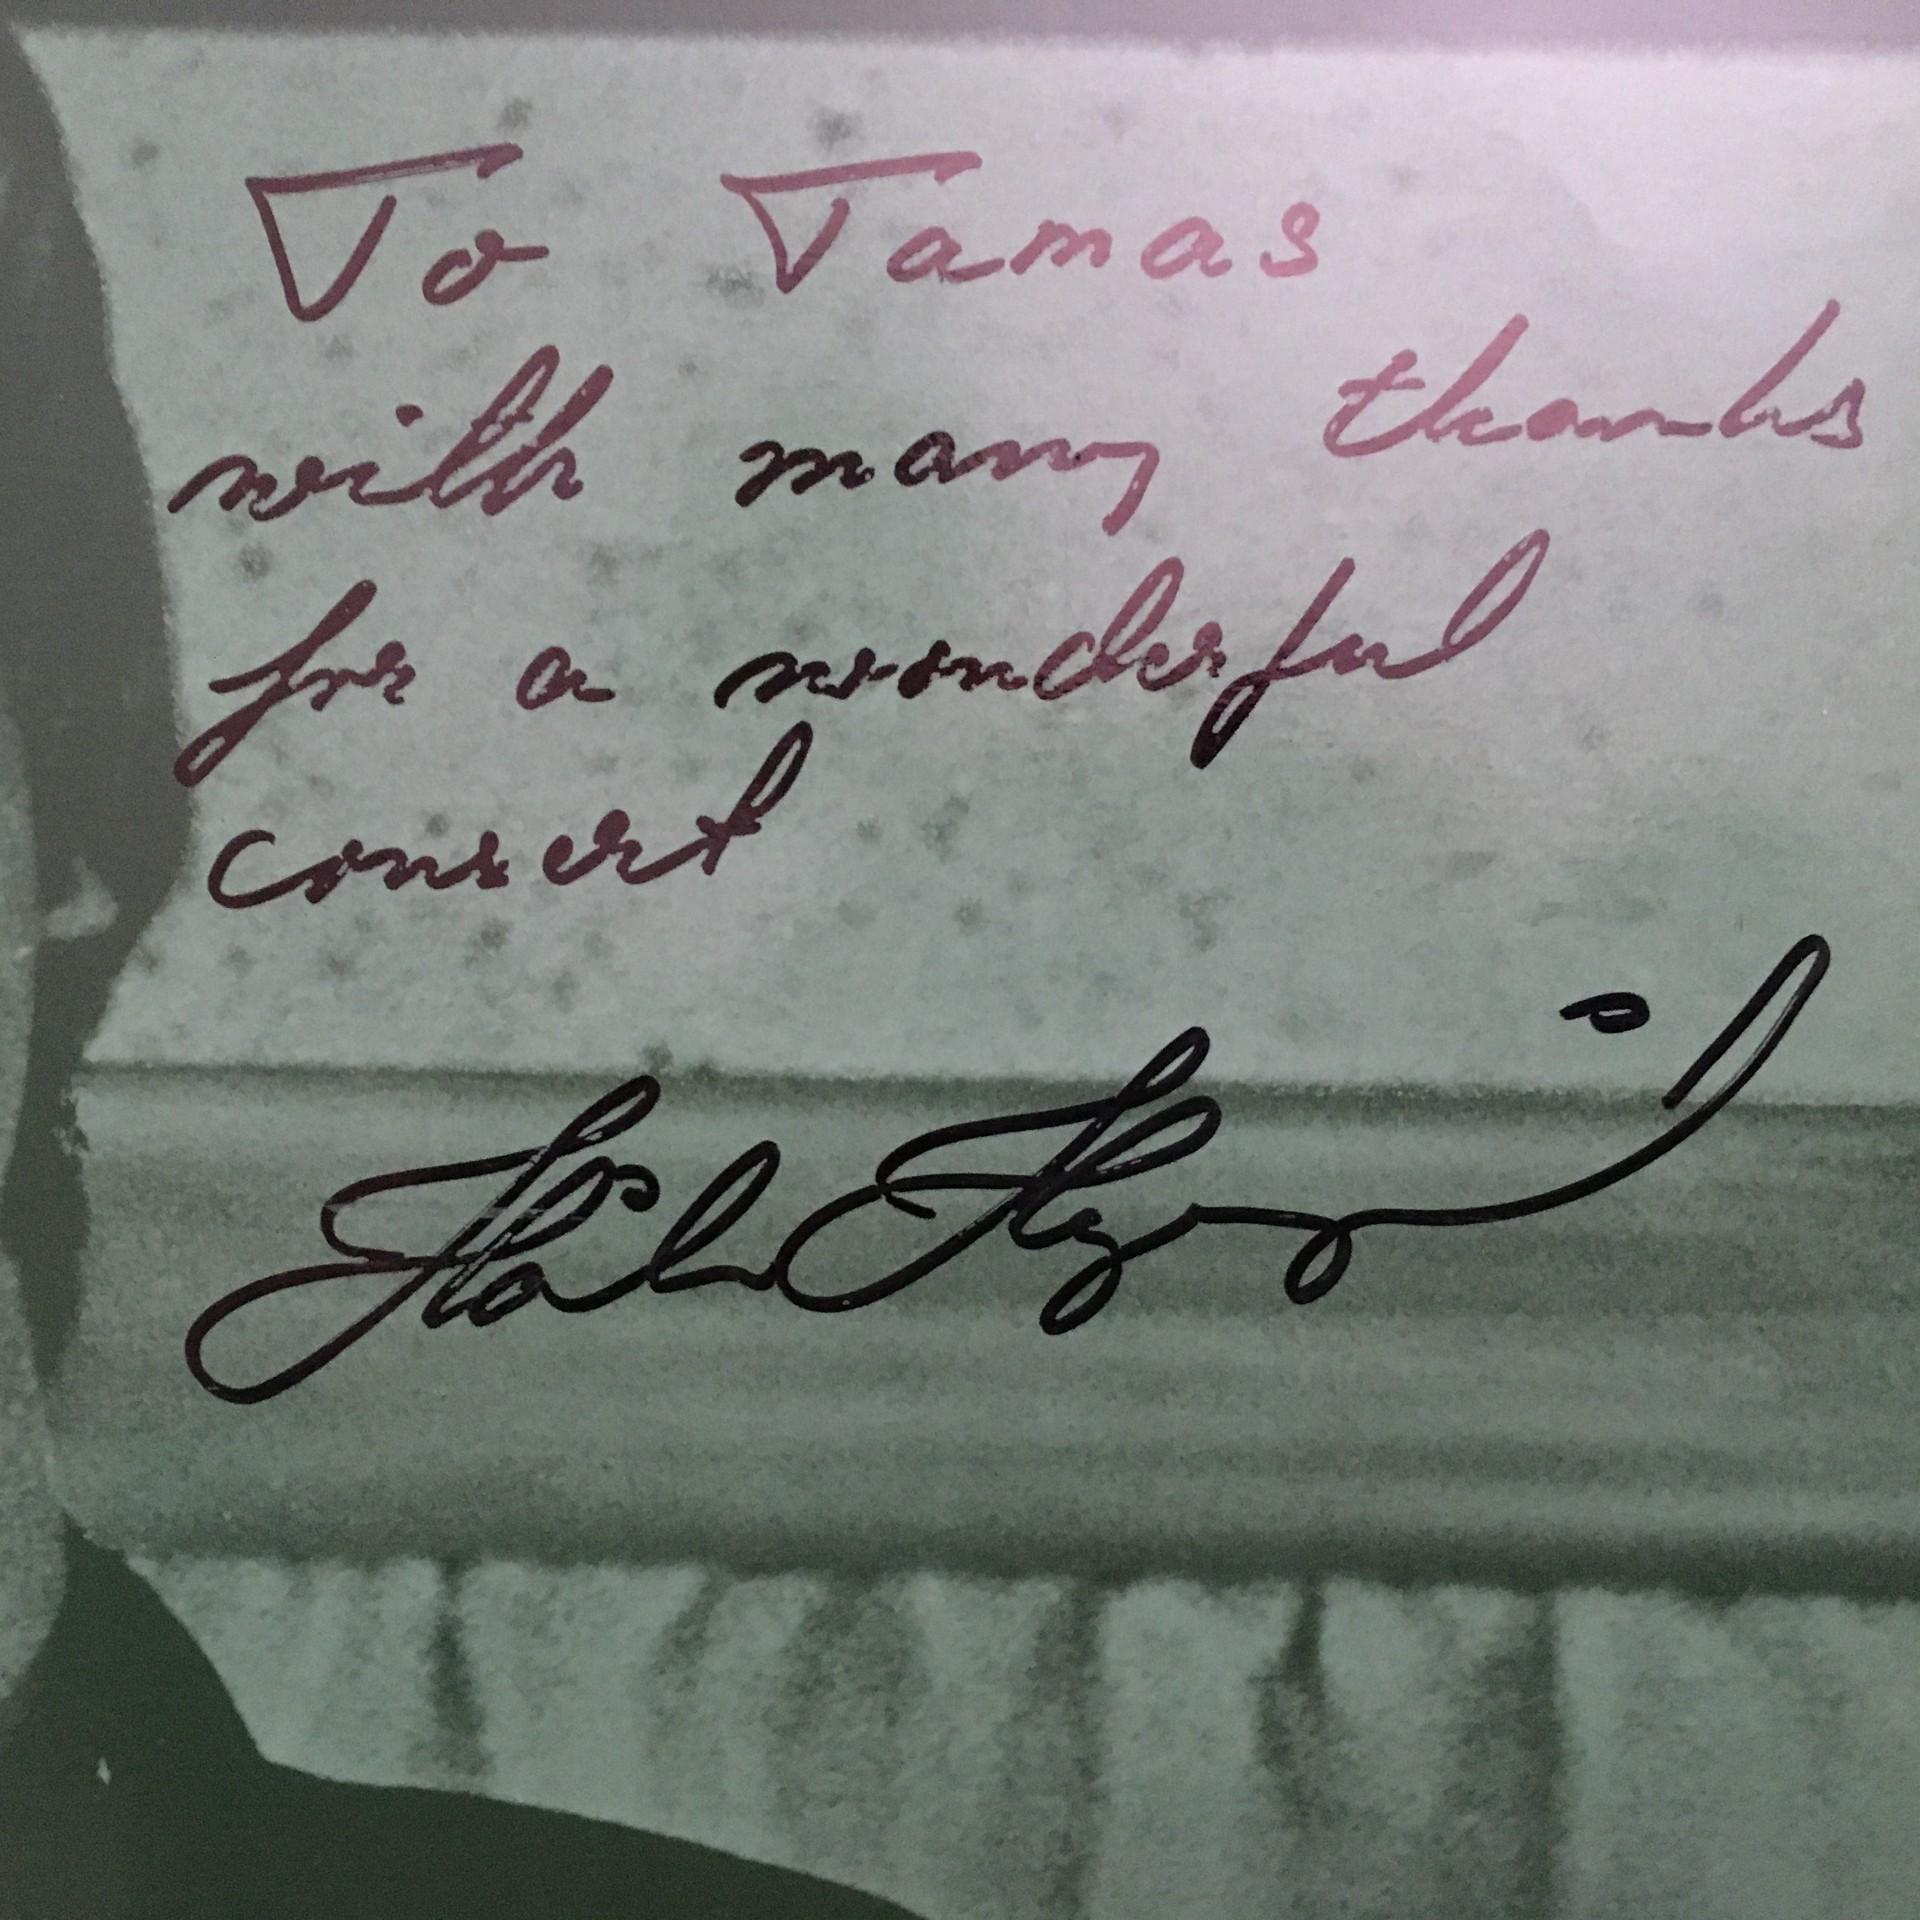 To Tamas
with many thanks
for a wonderful
consert